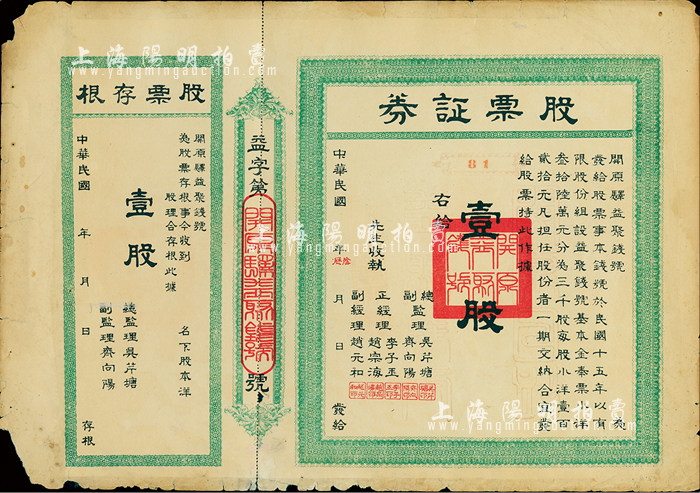 股票証券
開原驛益聚錢號 為
發給股票事本錢號於民國十五年以有
限股份組設益聚錢號基本金奉票小洋
叁拾陸萬元分為三千股每股小洋壹百
貳拾元凡担任股份者一期交納合宜發
給股票持此作據
右給
壹股
先生收執
總監理吳芹塘
副監理齊向陽
正經理李子玉
副經理趙宗海
副經理趙元和
中華民國 年 月 日 發給
81
益字第 號
股票存根
開原驛益聚錢號
為股票存根事今收到
名下股本洋
股理合存根此據
壹股
總監理吳芹塘
副監理齊向陽
中華民國 年 月 日 存根
上海陽明拍賣
www.yangmingauction.com
上海陽明拍賣
www.yangmingauction.com